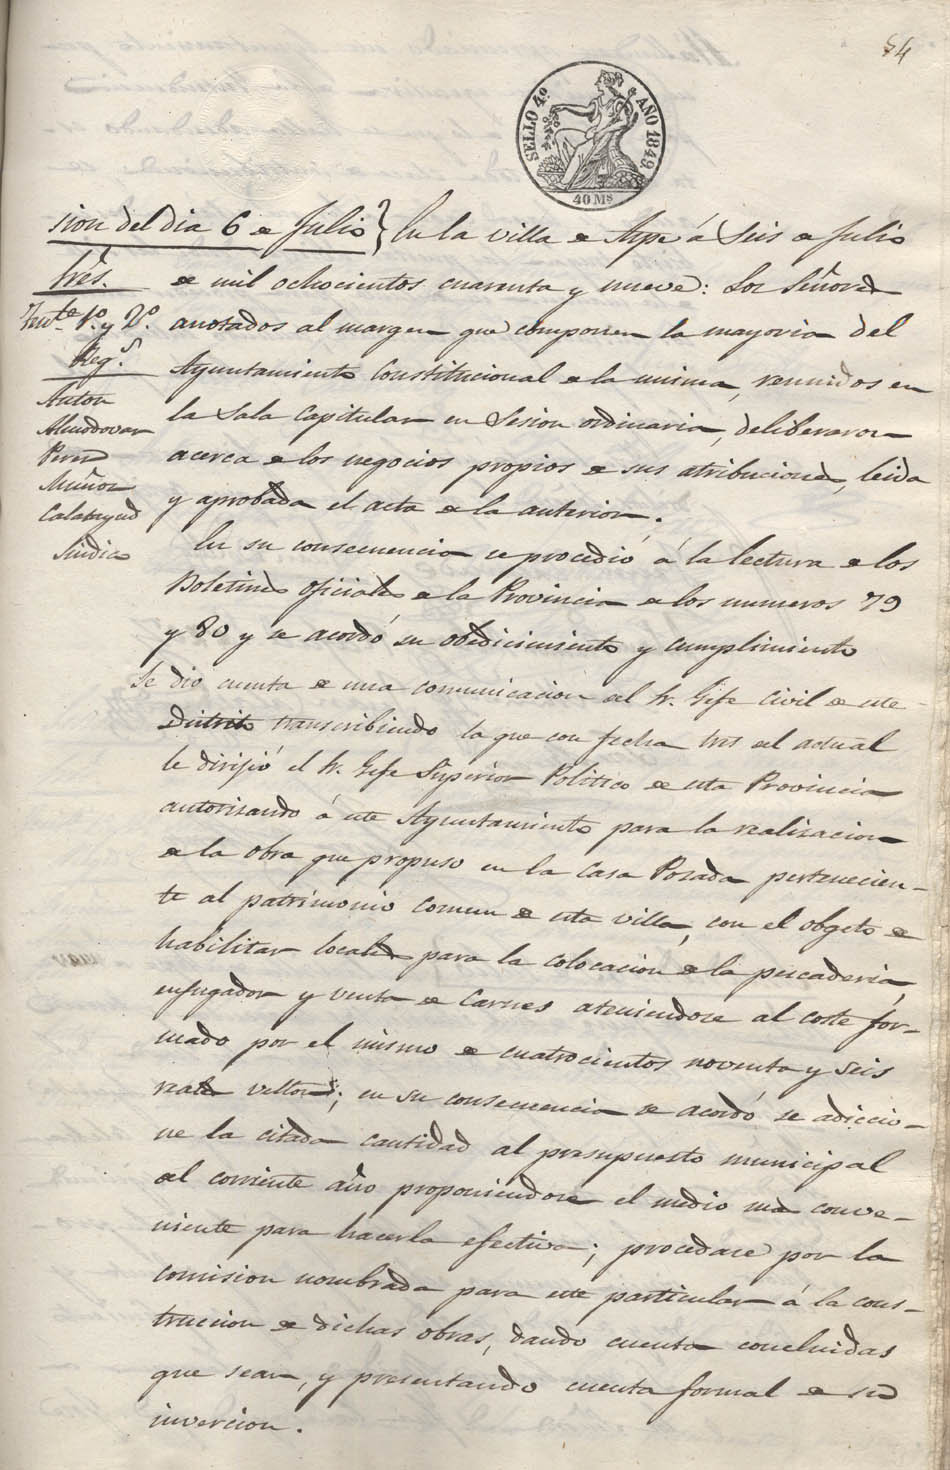 54
SELLO 4º AÑO 1849.
40 Ms
sion del dia 6 de Julio } En la villa de Aspe á Seis de Julio
Sres.
Tente. 1º. y 2º.
Regs.
Anton
Almodovar
Perez
Muñoz
Calatayud
Sindico
de mil ochocientos cuarenta y nueve: Los Señores
anotados al margen que componen la mayoria del
Ayuntamiento Constitucional de la misma, reunidos en
la Sala Capitular en Sesion ordinaria, deliberaron
acerca de los negocios propios de sus atribuciones, leida
y aprobada el acta de la anterior.
En su consecuencia se procedió á la lectura de los
Boletines oficiales de la Provincia de los numeros 79
y 80 y se acordó su obedicimiento y cumplimiento
Se dio cuenta de una comunicacion del Sr. Gefe Civil de este
Distrito transcribiendo la que con fecha tres del actual
le dirijió el Sr. Gefe Superior Politico de esta Provincia
autorisando á este Ayuntamiento para la realisacion
de la obra que propuso en la Casa Posada pertenecien-
te al patrimonio comun de esta villa, con el obgeto de
habilitar locales para la colocacion de la pescaderia,
enjugador y venta de Carnes ateniendose al coste for-
mado por el mismo de cuatrocientos noventa y seis
reales vellon; en su consecuencia se acordó se adiccio-
ne la citada cantidad al presupuesto municipal
del corriente año proponiendose el medio mas conve-
niente para hacerla efectiva; procedase por la
comision nombrada para este particular á la cons-
truccion de dichas obras, dando cuenta concluidas
que sean, y presentando cuenta formal de su
invercion.